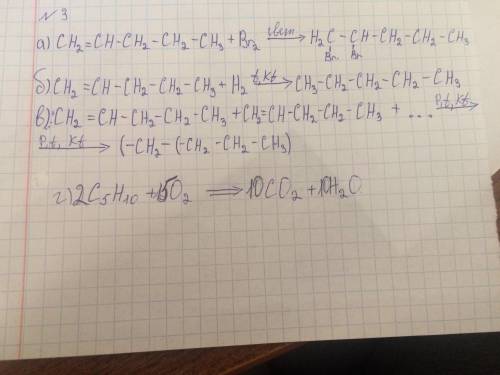 №3
а) CH₂=CH-CH₂-CH₂-CH₃+Br₂ свет→ H₂C-CH-CH₂-CH₂-CH₃
Br Br
б) CH₂=CH-CH₂-CH₂-CH₃+H₂ t,Kt→ CH₃-CH₂-CH₂-CH₂-CH₃
в) CH₂=CH-CH₂-CH₂-CH₃+CH₂=CH-CH₂-CH₂-CH₃ + ... P,t,Kt→
P,t, Kt→ (-CH₂-(-CH₂-CH₂-CH₃)
г) 2C₅H₁₀ +15O₂ ⟹ 10CO₂+10H₂O